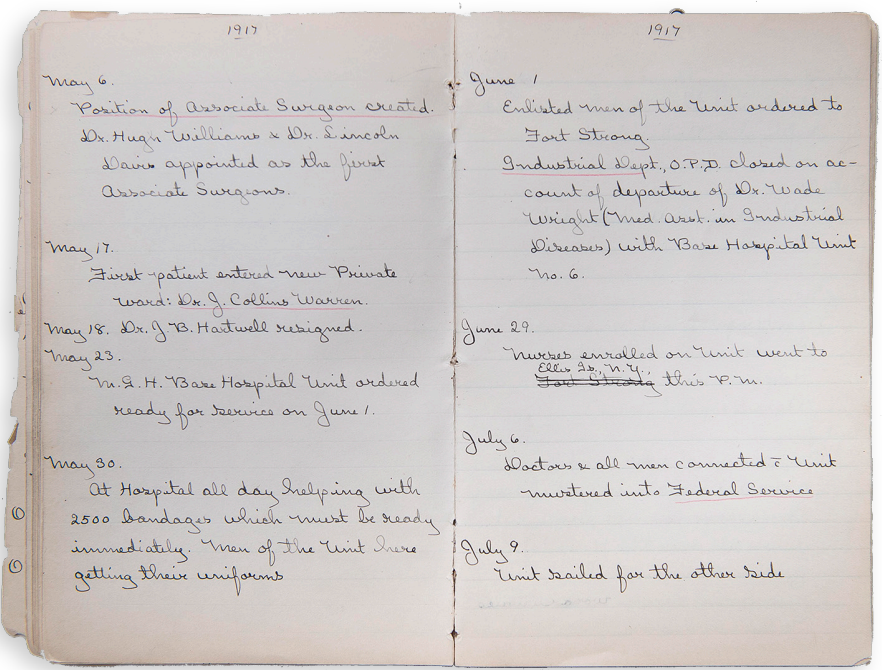 1917
May 6.
Position of Associate Surgeon created.
Dr. Hugh Williams & Dr. Lincoln
Davis appointed as the first
Associate Surgeons.
May 17.
First patient entered new Private
Ward: Dr. J. Collins Warren.
May 18. Dr. J. B. Hartwell resigned.
May 23.
M. G. H. Base Hospital Unit ordered
ready for service on June 1.
May 30.
At Hospital all day helping with
2500 bandages which must be ready
immediately. Men of the Unit here
getting their uniforms
1917
June 1
Enlisted men of the Unit ordered to
Fort Strong.
Industrial Dept., O.P.D. closed on ac-
count of departure of Dr. Wade
Wright (Med. Asst. in Industrial
Diseases) with Base Hospital Unit
No. 6.
June 29.
Nurses enrolled on Unit went to
Ellis Is., N.Y.,
Fort Strong this P.M.
July 6.
Doctors & all men connected c̄ Unit
mustered into Federal Service
July 9.
Unit sailed for the other side